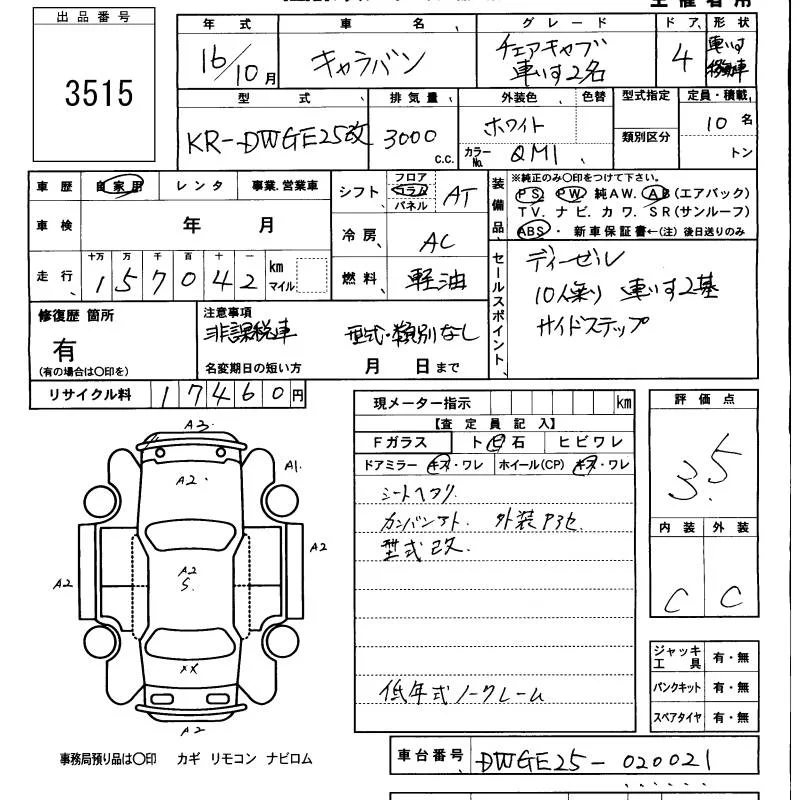 出品番号
3515
年式 車名 グレード ドア 形状
16/10月 キャラバン チェアキャブ 車いす2名 4 車いす移動車
型式 排気量 外装色 色替 型式指定 定員・積載
KR-DWGE25改 3000 c.c. ホワイト 10名
カラーNo. QM1 類別区分 トン
車歴 自家用 レンタ 事業.営業車
車検 年 月
走行 十万 万 千 百 十 一
157042 km マイル
シフト フロア コラム パネル AT
冷房 AC
燃料 軽油
装備品
※純正のみ〇印をつけて下さい。
PS PW 純AW. AB(エアバック)
TV. ナビ. カワ. SR(サンルーフ)
ABS・ 新車保証書←(注) 後日送りのみ
セールスポイント
ディーゼル
10人乗り 車いす2基
サイドステップ
修復歴 箇所
有
(有の場合は〇印を)
注意事項
非課税車 型式・類別なし
名変期日の短い方 月 日まで
リサイクル料 17460円
現メーター指示 km
【査定員記入】
Fガラス ト ビ 石 ヒビワレ
ドアミラー キズ・ワレ ホイール(CP) キズ・ワレ
シートヘタリ
カンバンアト. 外装
型式改.
低年式ノークレーム
評価点
3.5
内装 外装
C C
ジャッキ工具 有・無
パンクキット 有・無
スペアタイヤ 有・無
A3
A2
A1
A2
A2
S
A2
XX
A2
事務局預り品は〇印 カギ リモコン ナビロム
車台番号 DWGE25-020021